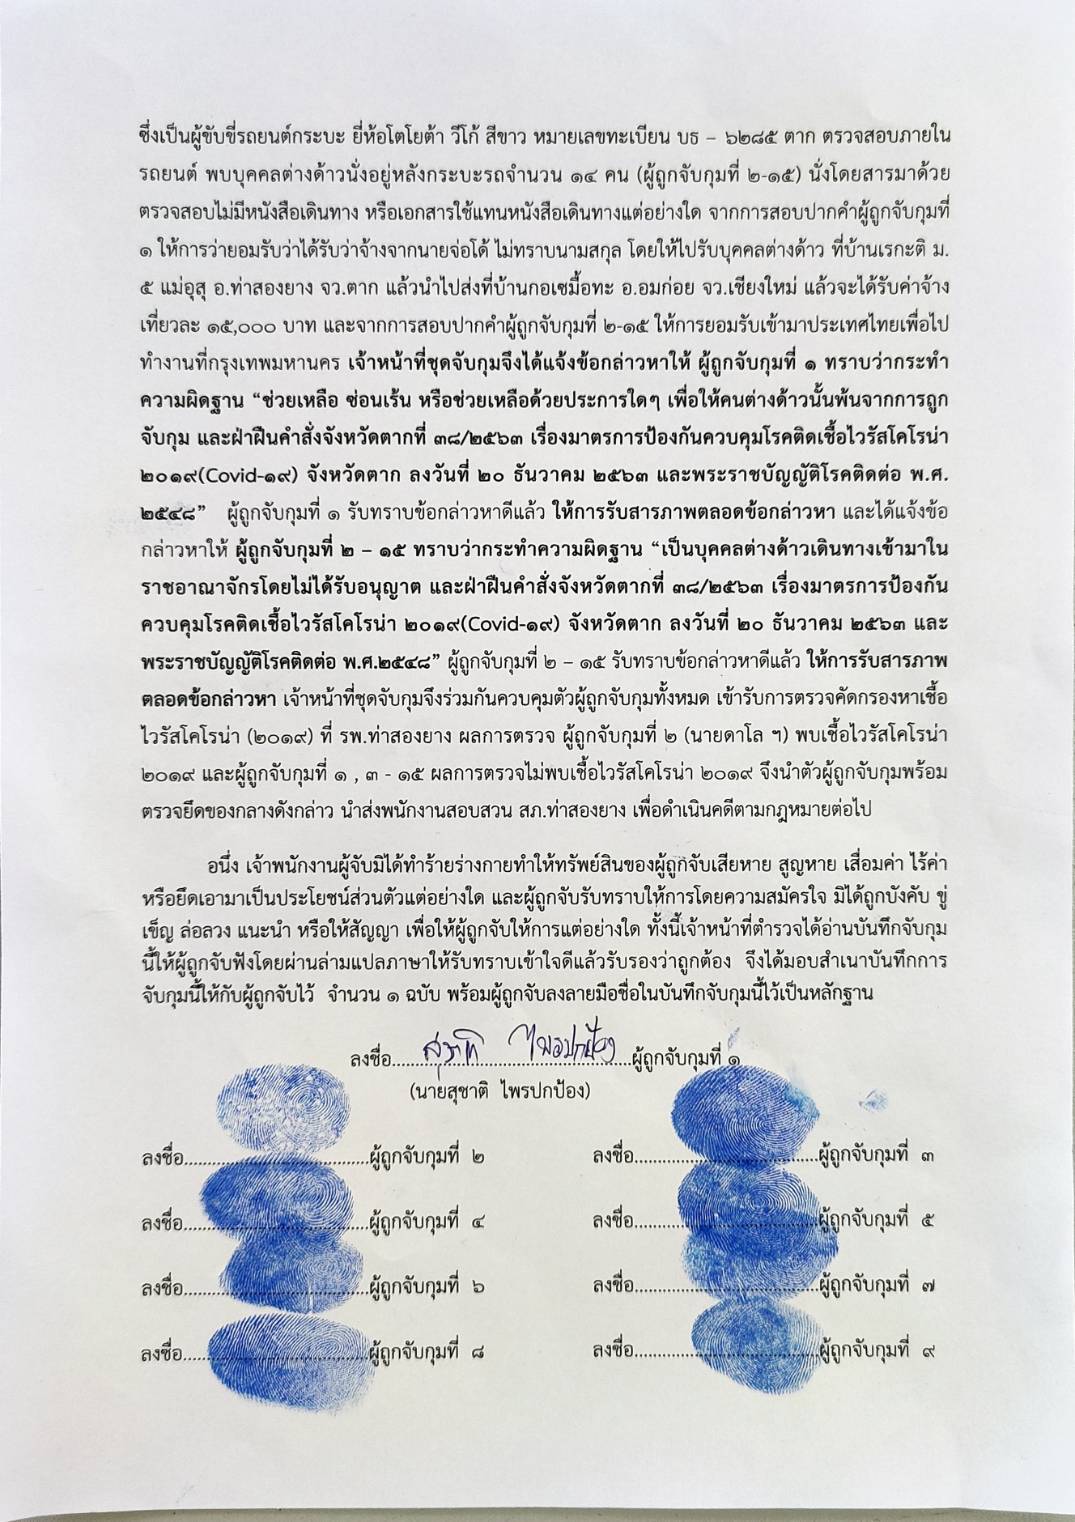 ซึ่งเป็นผู้ขับขี่รถยนต์กระบะ ยี่ห้อโตโยต้า วีโก้ สีขาว หมายเลขทะเบียน บธ – ๖๒๘๕ ตาก ตรวจสอบภายใน
รถยนต์ พบบุคคลต่างด้าวนั่งอยู่หลังกระบะรถจำนวน ๑๔ คน (ผู้ถูกจับกุมที่ ๒-๑๕) นั่งโดยสารมาด้วย
ตรวจสอบไม่มีหนังสือเดินทาง หรือเอกสารใช้แทนหนังสือเดินทางแต่อย่างใด จากการสอบปากคำผู้ถูกจับกุมที่
๑ ให้การว่ายอมรับว่าได้รับว่าจ้างจากนายจ่อโด้ ไม่ทราบนามสกุล โดยให้ไปรับบุคคลต่างด้าว ที่บ้านเรกะติ ม.
๕ แม่อุสุ อ.ท่าสองยาง จว.ตาก แล้วนำไปส่งที่บ้านกอเซมื้อทะ อ.อมก่อย จว.เชียงใหม่ แล้วจะได้รับค่าจ้าง
เที่ยวละ ๑๕,๐๐๐ บาท และจากการสอบปากคำผู้ถูกจับกุมที่ ๒-๑๕ ให้การยอมรับเข้ามาประเทศไทยเพื่อไป
ทำงานที่กรุงเทพมหานคร เจ้าหน้าที่ชุดจับกุมจึงได้แจ้งข้อกล่าวหาให้ ผู้ถูกจับกุมที่ ๑ ทราบว่ากระทำ
ความผิดฐาน “ช่วยเหลือ ซ่อนเร้น หรือช่วยเหลือด้วยประการใดๆ เพื่อให้คนต่างด้าวนั้นพ้นจากการถูก
จับกุม และฝ่าฝืนคำสั่งจังหวัดตากที่ ๓๘/๒๕๖๓ เรื่องมาตรการป้องกันควบคุมโรคติดเชื้อไวรัสโคโรน่า
๒๐๑๙(Covid-๑๙) จังหวัดตาก ลงวันที่ ๒๐ ธันวาคม ๒๕๖๓ และพระราชบัญญัติโรคติดต่อ พ.ศ.
๒๕๔๘” ผู้ถูกจับกุมที่ ๑ รับทราบข้อกล่าวหาดีแล้ว ให้การรับสารภาพตลอดข้อกล่าวหา และได้แจ้งข้อ
กล่าวหาให้ ผู้ถูกจับกุมที่ ๒ – ๑๕ ทราบว่ากระทำความผิดฐาน “เป็นบุคคลต่างด้าวเดินทางเข้ามาใน
ราชอาณาจักรโดยไม่ได้รับอนุญาต และฝ่าฝืนคำสั่งจังหวัดตากที่ ๓๘/๒๕๖๓ เรื่องมาตรการป้องกัน
ควบคุมโรคติดเชื้อไวรัสโคโรน่า ๒๐๑๙(Covid-๑๙) จังหวัดตาก ลงวันที่ ๒๐ ธันวาคม ๒๕๖๓ และ
พระราชบัญญัติโรคติดต่อ พ.ศ.๒๕๔๘” ผู้ถูกจับกุมที่ ๒ – ๑๕ รับทราบข้อกล่าวหาดีแล้ว ให้การรับสารภาพ
ตลอดข้อกล่าวหา เจ้าหน้าที่ชุดจับกุมจึงร่วมกันควบคุมตัวผู้ถูกจับกุมทั้งหมด เข้ารับการตรวจคัดกรองหาเชื้อ
ไวรัสโคโรน่า (๒๐๑๙) ที่ รพ.ท่าสองยาง ผลการตรวจ ผู้ถูกจับกุมที่ ๒ (นายดาโล ฯ) พบเชื้อไวรัสโคโรน่า
๒๐๑๙ และผู้ถูกจับกุมที่ ๑ , ๓ - ๑๕ ผลการตรวจไม่พบเชื้อไวรัสโคโรน่า ๒๐๑๙ จึงนำตัวผู้ถูกจับกุมพร้อม
ตรวจยึดของกลางดังกล่าว นำส่งพนักงานสอบสวน สภ.ท่าสองยาง เพื่อดำเนินคดีตามกฎหมายต่อไป
อนึ่ง เจ้าพนักงานผู้จับมิได้ทำร้ายร่างกายทำให้ทรัพย์สินของผู้ถูกจับเสียหาย สูญหาย เสื่อมค่า ไร้ค่า
หรือยึดเอามาเป็นประโยชน์ส่วนตัวแต่อย่างใด และผู้ถูกจับรับทราบให้การโดยความสมัครใจ มิได้ถูกบังคับ ขู่
เข็ญ ล่อลวง แนะนำ หรือให้สัญญา เพื่อให้ผู้ถูกจับให้การแต่อย่างใด ทั้งนี้เจ้าหน้าที่ตำรวจได้อ่านบันทึกจับกุม
นี้ให้ผู้ถูกจับฟังโดยผ่านล่ามแปลภาษาให้รับทราบเข้าใจดีแล้วรับรองว่าถูกต้อง จึงได้มอบสำเนาบันทึกการ
จับกุมนี้ให้กับผู้ถูกจับไว้ จำนวน ๑ ฉบับ พร้อมผู้ถูกจับลงลายมือชื่อในบันทึกจับกุมนี้ไว้เป็นหลักฐาน
ลงชื่อ....สุชาติ ไพรปกป้อง....ผู้ถูกจับกุมที่ ๑
(นายสุชาติ ไพรปกป้อง)
ลงชื่อ..................................ผู้ถูกจับกุมที่ ๒ ลงชื่อ..................................ผู้ถูกจับกุมที่ ๓
ลงชื่อ..................................ผู้ถูกจับกุมที่ ๔ ลงชื่อ..................................ผู้ถูกจับกุมที่ ๕
ลงชื่อ..................................ผู้ถูกจับกุมที่ ๖ ลงชื่อ..................................ผู้ถูกจับกุมที่ ๗
ลงชื่อ..................................ผู้ถูกจับกุมที่ ๘ ลงชื่อ..................................ผู้ถูกจับกุมที่ ๙